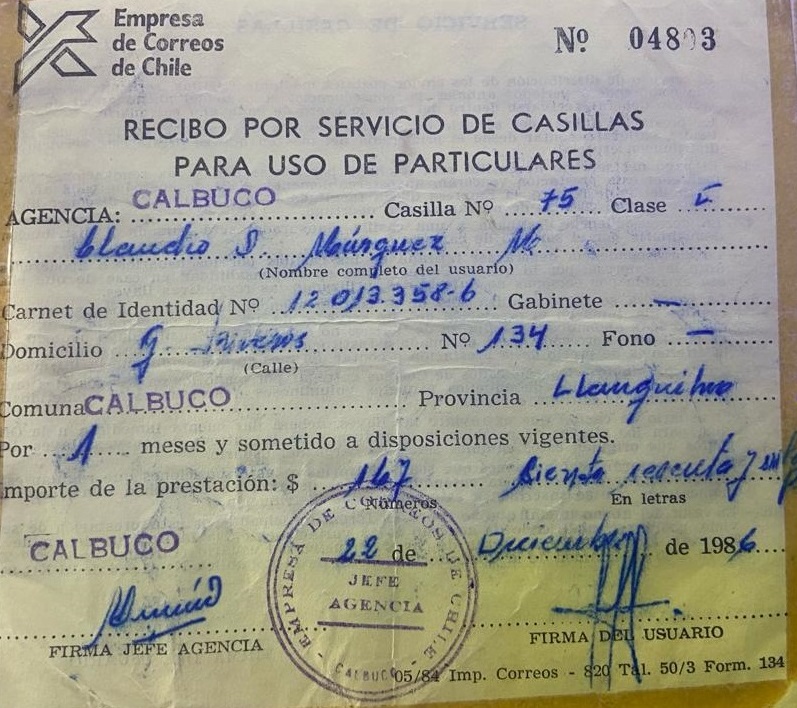 Empresa
de Correos
de Chile
Nº 04803
RECIBO POR SERVICIO DE CASILLAS
PARA USO DE PARTICULARES
AGENCIA: CALBUCO Casilla Nº 75 Clase
Claudio D. Márquez M.
(Nombre completo del usuario)
Carnet de Identidad Nº 12.013.358-6 Gabinete —
Domicilio Nº 134 Fono —
(Calle)
Comuna CALBUCO Provincia Llanquihue
Por 1 meses y sometido a disposiciones vigentes.
mporte de la prestación: $ 167 Ciento sesenta y
Números En letras
CALBUCO 22 de Diciembre de 1986
JEFE
AGENCIA
EMPRESA DE CORREOS DE CHILE
CALBUCO
FIRMA JEFE AGENCIA FIRMA DEL USUARIO
05/84 Imp. Correos - 820 Tal. 50/3 Form. 134